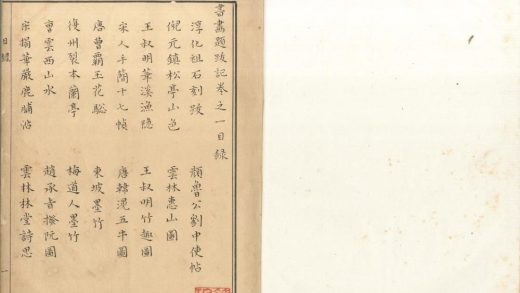 書畫題跋記卷之一目錄
淳化祖石刻跋 顏魯公劉中使帖
倪元鎮松亭山色 雲林惠山圖
王叔明華溪漁隱 王叔明竹趣圖
宋人手簡十七幀 唐韓滉五牛圖
唐曹霸玉花驄 東坡墨竹
復州裂本蘭亭 梅道人墨竹
曹雲西山水 趙承旨撥阮圖
宋搨華嚴鹿脯帖 雲林林堂詩思
目錄 一